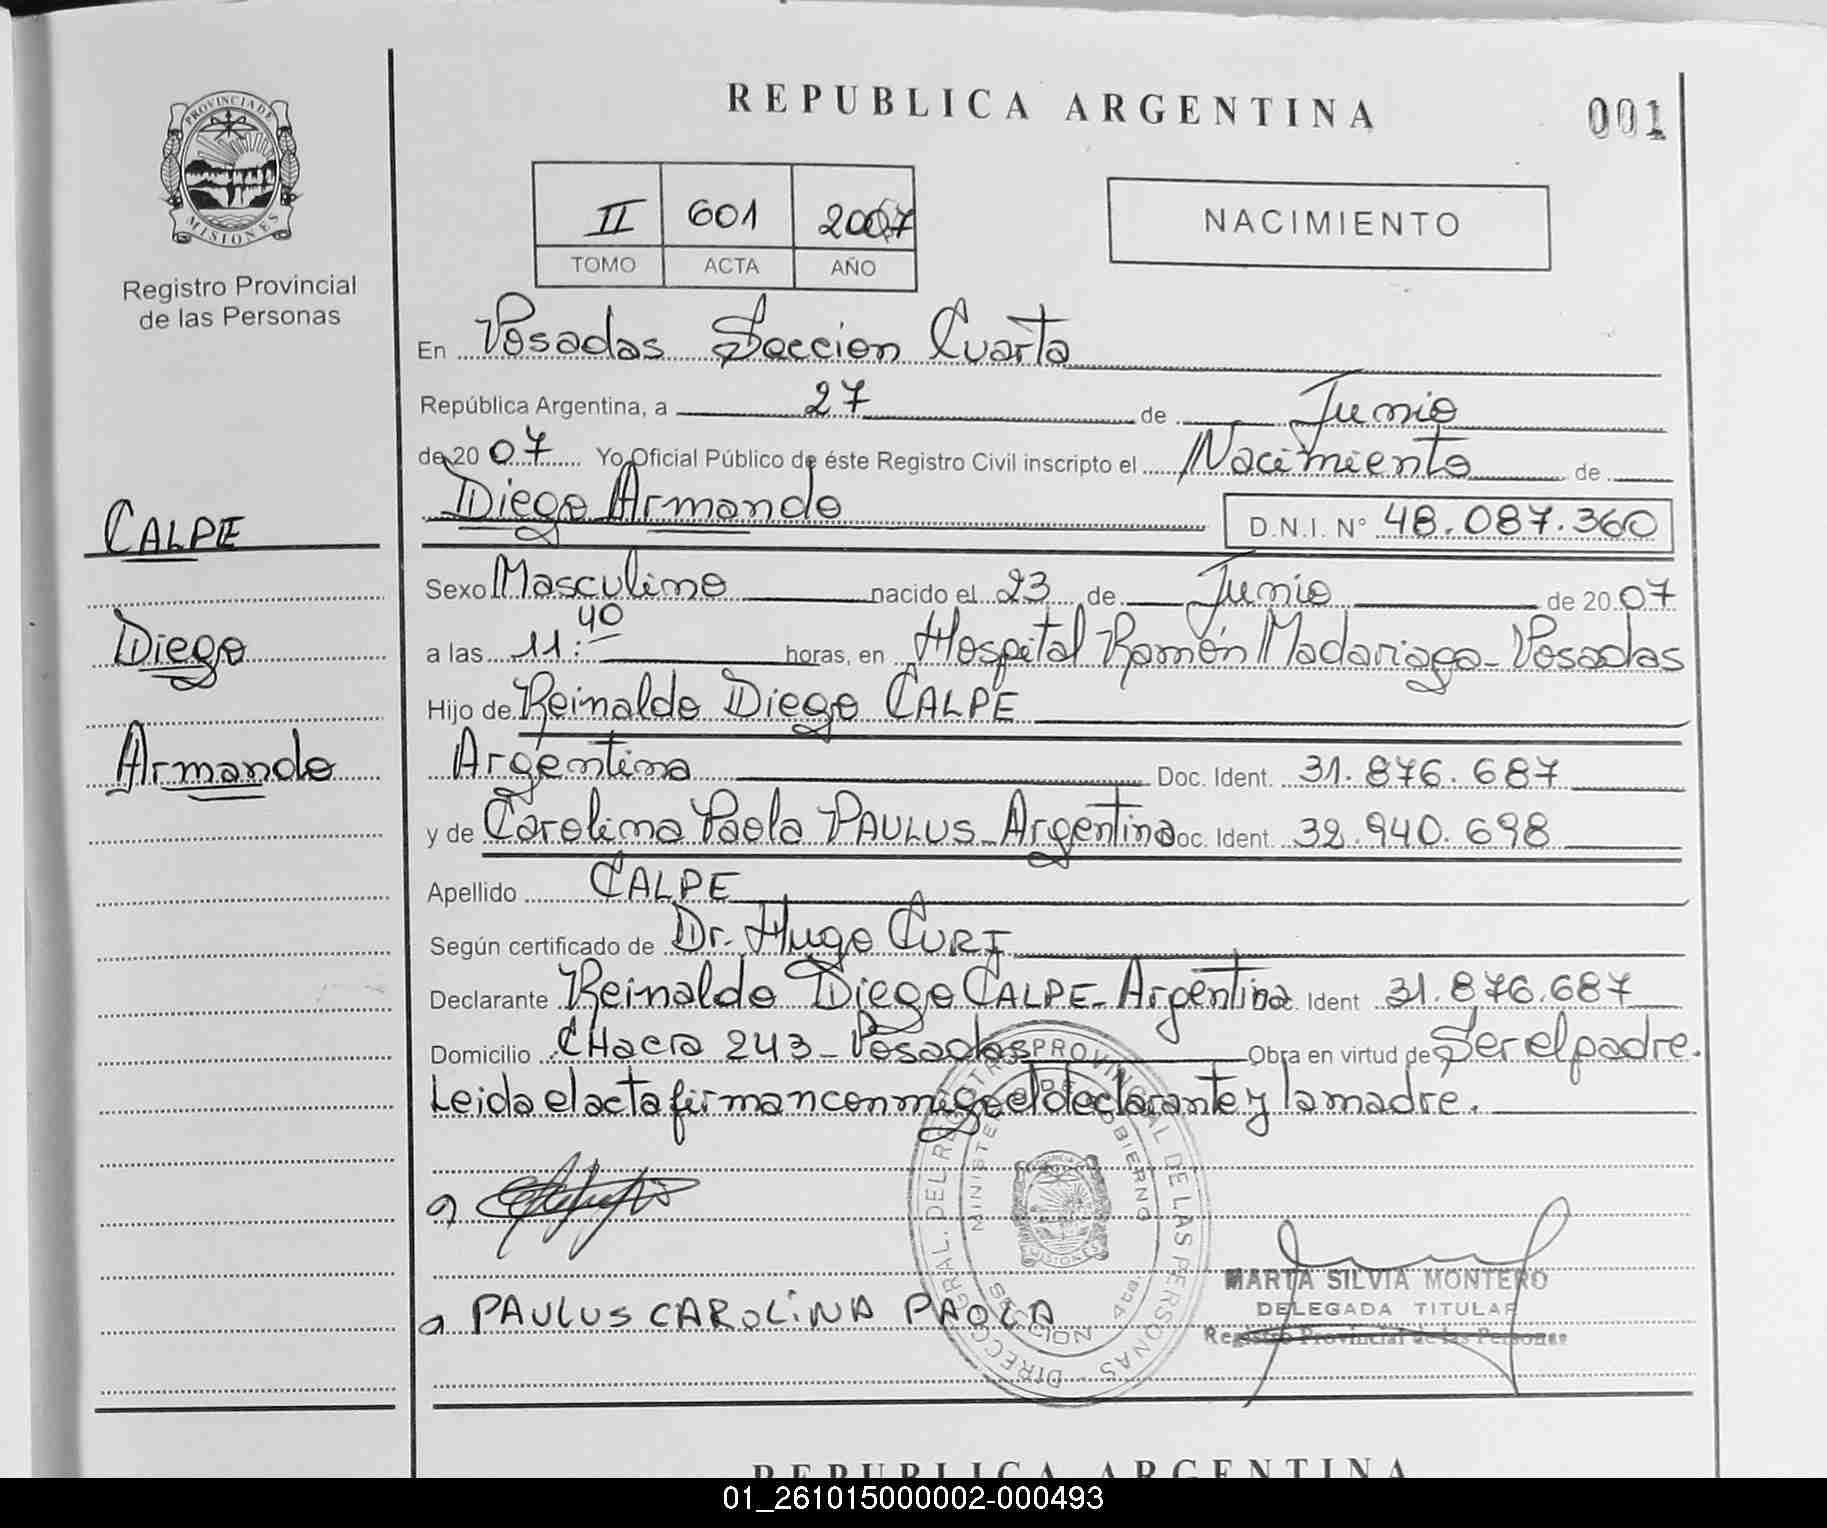 REPUBLICA ARGENTINA
001
PROVINCIA DE
MISIONES
Registro Provincial
de las Personas
II 601 2007
TOMO ACTA AÑO
NACIMIENTO
En Posadas Seccion Cuarta
República Argentina, a 27 de Junio
de 20 07 Yo Oficial Público de éste Registro Civil inscripto el Nacimiento de
Diego Armando D.N.I. N° 48.087.360
CALPE
Diego
Armando
Sexo Masculino nacido el 23 de Junio de 20 07
a las 11:40 horas, en Hospital Ramón Madariaga - Posadas
Hijo de Reinaldo Diego CALPE
Argentina Doc. Ident. 31.876.687
y de Carolina Paola PAULUS - Argentina Doc. Ident. 32.940.698
Apellido CALPE
Según certificado de Dr. Hugo CURI
Declarante Reinaldo Diego CALPE - Argentina Doc. Ident 31.876.687
Domicilio CHacra 243 - Posadas Obra en virtud de Ser el padre.
Leida el acta firman conmigo el declarante y la madre.
PAULUS CAROLiNA PAOLA
DIRECC. GRAL. DEL REGISTRO PROVINCIAL DE LAS PERSONAS
MINISTERIO DE GOBIERNO
MISIONES
MARTA SILVIA MONTERO
DELEGADA TITULAR
Registro Provincial de las Personas
REPUBLICA ARGENTINA
01_261015000002-000493